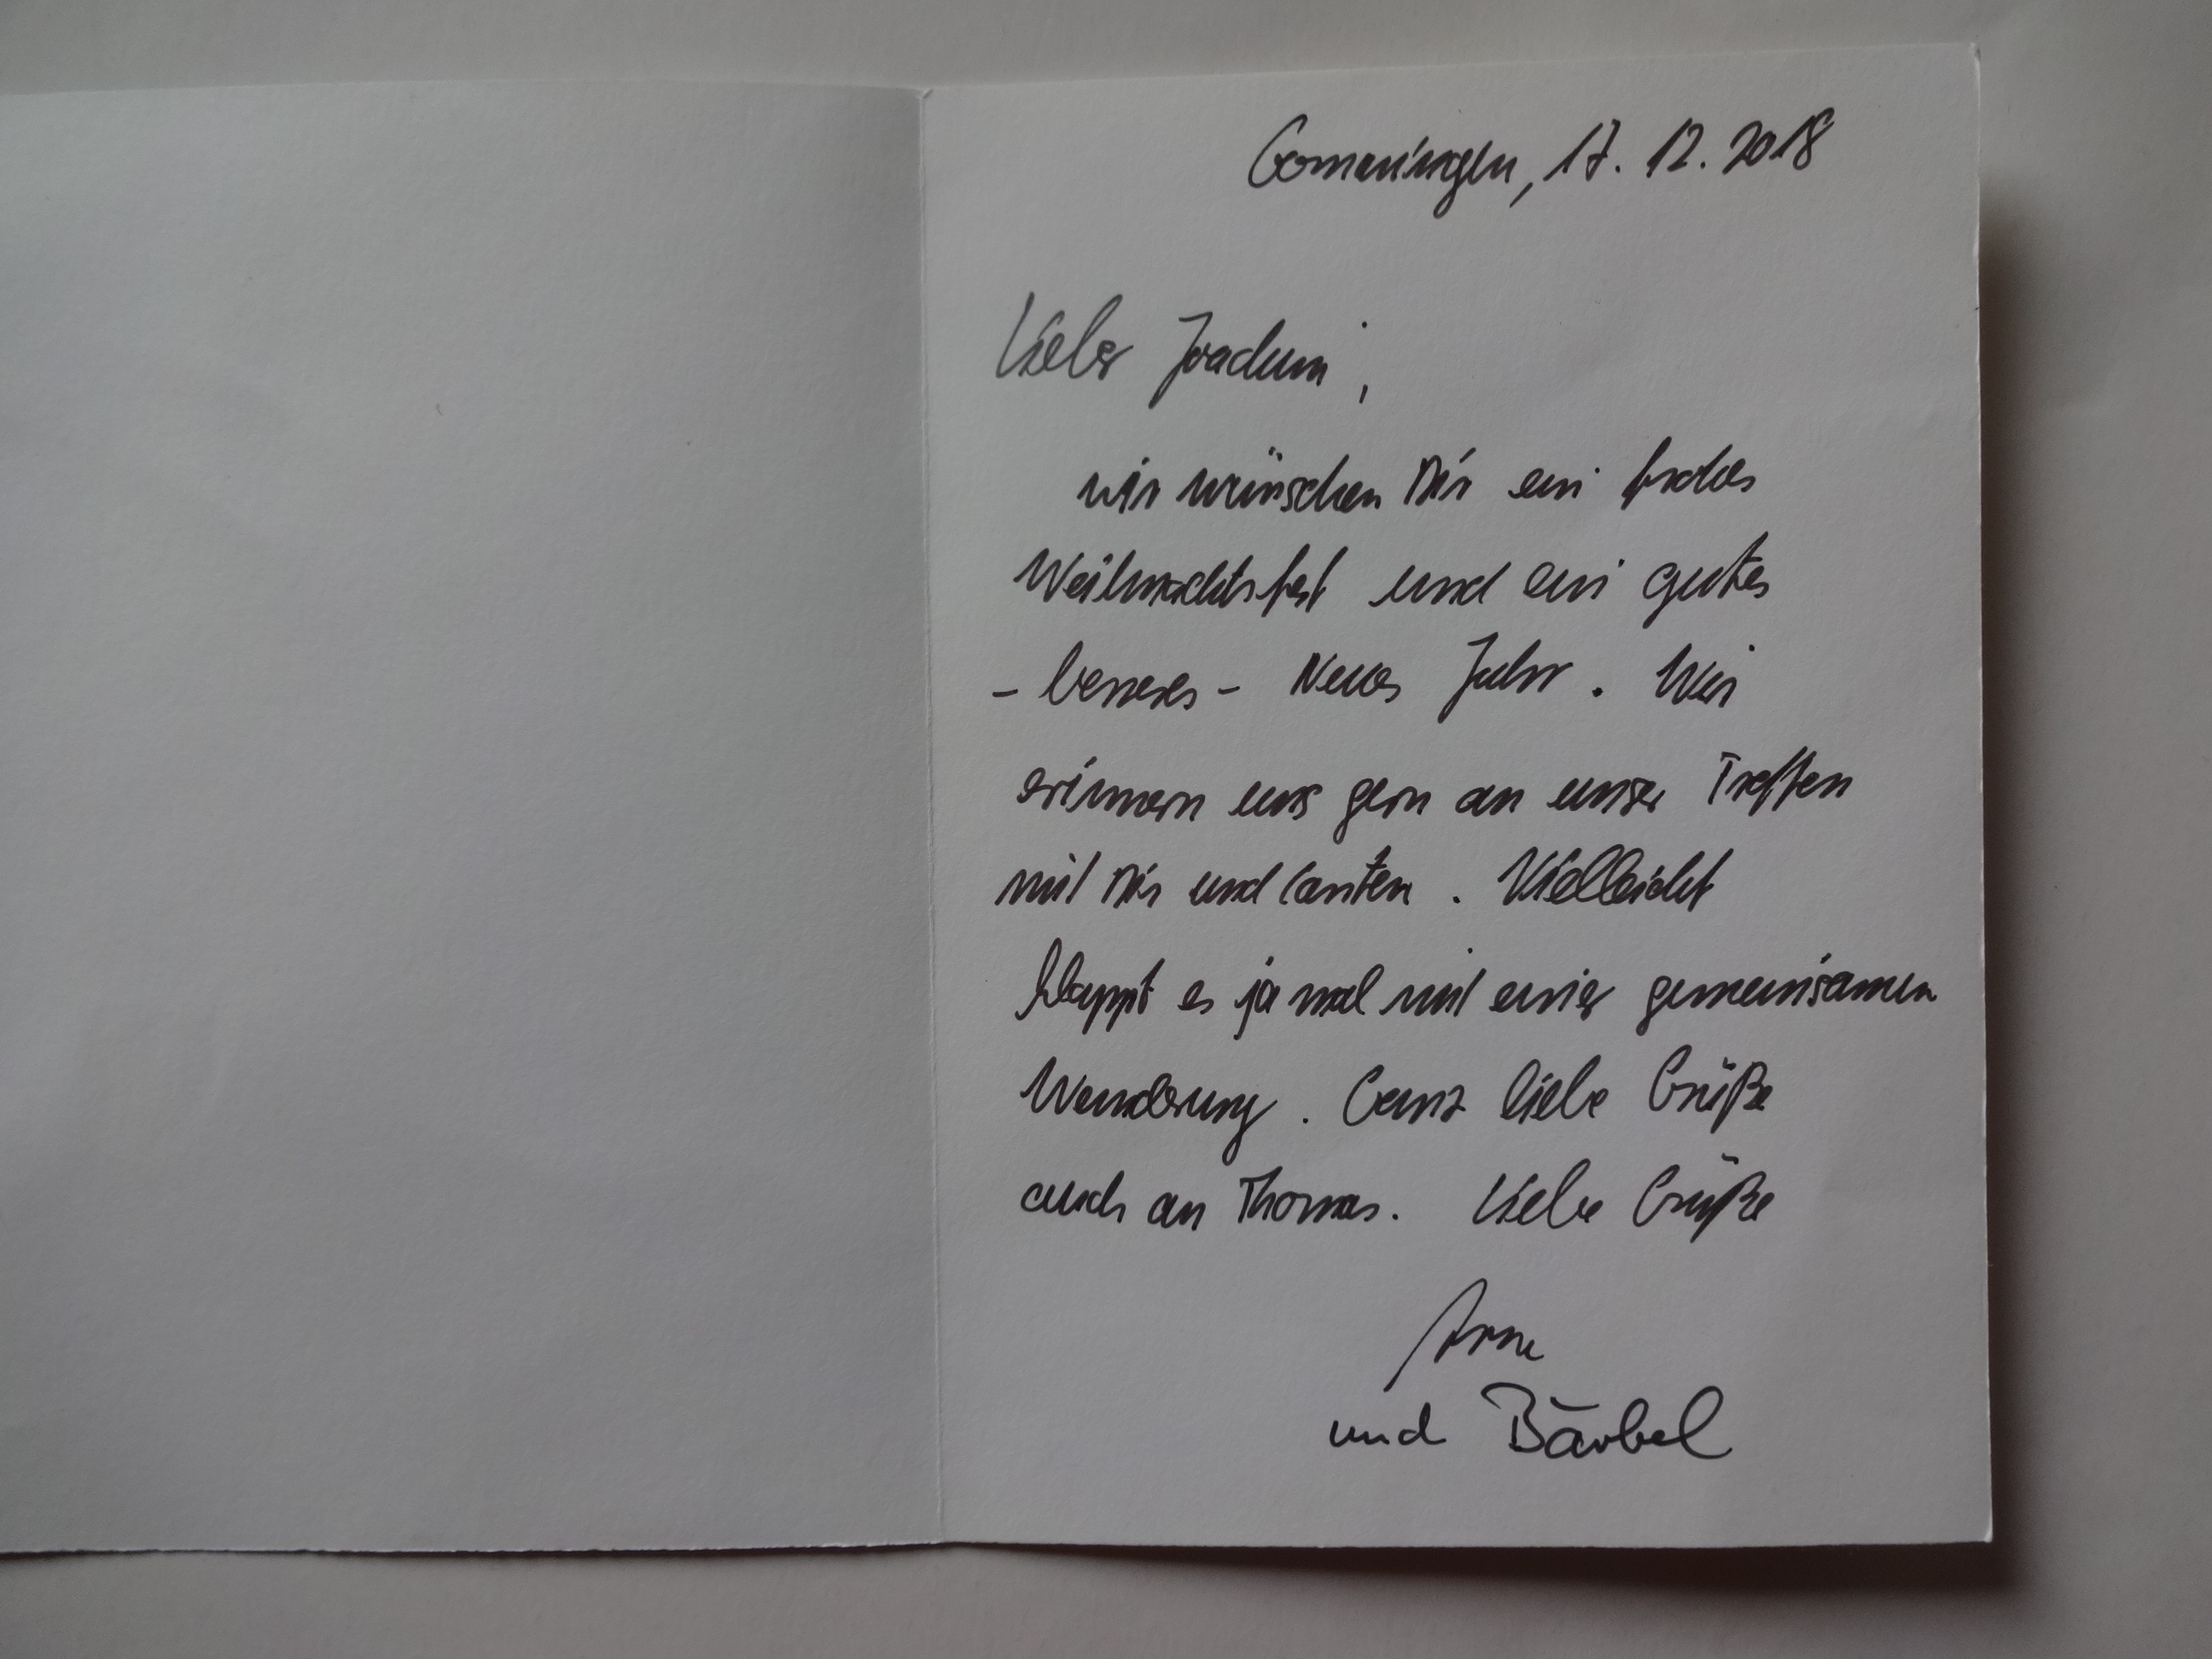 Gomaringen, 17. 12. 2018
Lieber Joachim,
wir wünschen Dir ein frohes
Weihnachtsfest und ein gutes
- besseres - Neues Jahr. Wir
erinnern uns gern an unser Treffen
mit Dir und Carsten. Vielleicht
klappt es ja mal mit einer gemeinsamen
Wanderung. Ganz liebe Grüße
auch an Thomas. Liebe Grüße
Arne
und Bärbel